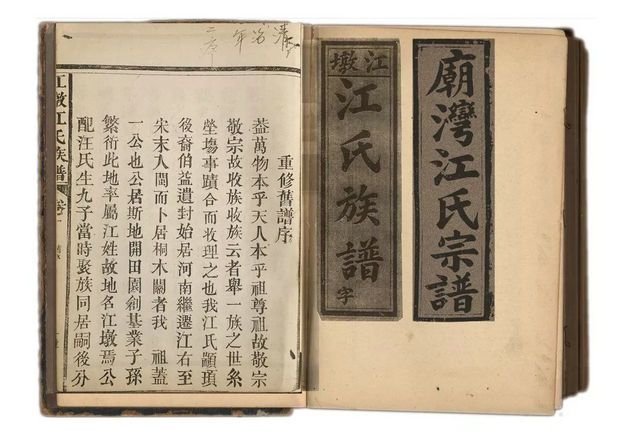 廟灣江氏宗譜
江墩
江氏族譜
字
重修舊譜序
葢萬物本乎天人本乎祖尊祖故敬宗
敬宗故收族收族云者舉一族之世系
塋塲事蹟合而收理之也我江氏顓頊
後裔伯益遺封始居河南繼遷江右至
宋末入閩而卜居桐木關者我 祖蓋
一公也公居斯地開田園創基業子孫
繁衍此地率屬江姓故地名江墩焉公
配汪氏生九子當時聚族同居嗣後分
江墩江氏族譜 卷一